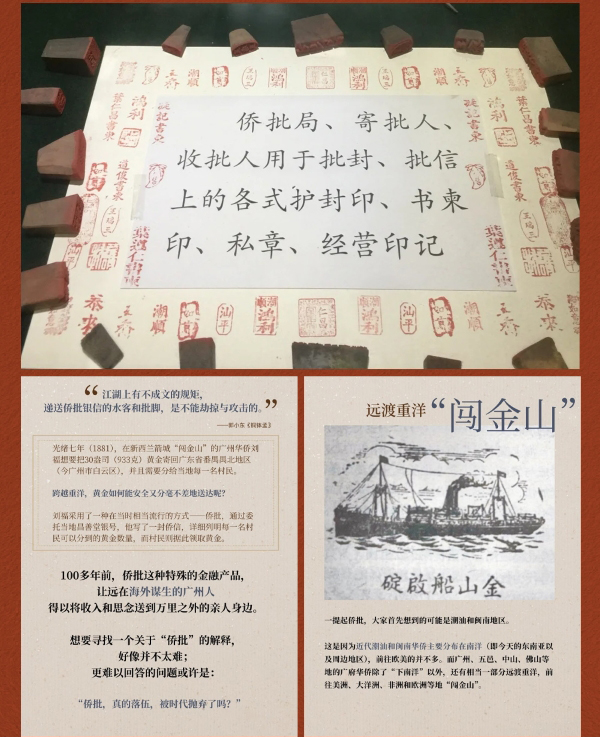 侨批局、寄批人、
收批人用于批封、批信
上的各式护封印、书柬
印、私章、经营印记
“江湖上有不成文的规矩，
递送侨批银信的水客和批脚，是不能劫掠与攻击的。”
光绪七年（1881），在新西兰箭城“闯金山”的广州华侨刘
福想要把30盎司（933克）黄金寄回广东省番禺禺北地区
（今广州市白云区），并且需要分给当地每一名村民。
跨越重洋，黄金如何能安全又分毫不差地送达呢？
刘福采用了一种在当时相当流行的方式——侨批，通过委
托当地昌善堂银号，他写了一封侨信，详细列明每一名村
民可以分到的黄金数量，而村民则据此领取黄金。
100多年前，侨批这种特殊的金融产品，
让远在海外谋生的广州人
得以将收入和思念送到万里之外的亲人身边。
想要寻找一个关于“侨批”的解释，
好像并不太难；
更难以回答的问题或许是：
“侨批，真的落伍，被时代抛弃了吗？”
远渡重洋“闯金山”
碇啟船山金
一提起侨批，大家首先想到的可能是潮汕和闽南地区。
这是因为近代潮汕和闽南华侨主要分布在南洋（即今天的东南亚以
及周边地区），前往欧美的并不多。而广州、五邑、中山、佛山等
地的广府华侨除了“下南洋”以外，还有相当一部分远渡重洋，前
往美洲、大洋洲、非洲和欧洲等地“闯金山”。